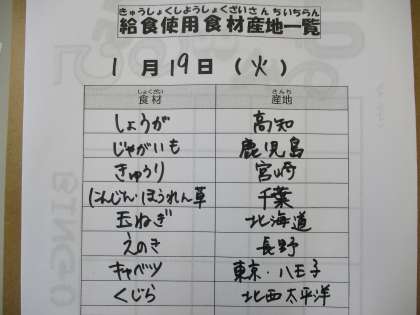 きゅうしょくしようしょくざいさんちいちらん
給食使用食材産地一覧
1月19日(火)
しょくざい さんち
食材 産地
しょうが 高知
じゃがいも 鹿児島
きゅうり 宮崎
にんじん・ほうれん草 千葉
玉ねぎ 北海道
えのき 長野
キャベツ 東京・八王子
くじら 北西太平洋
BINGO